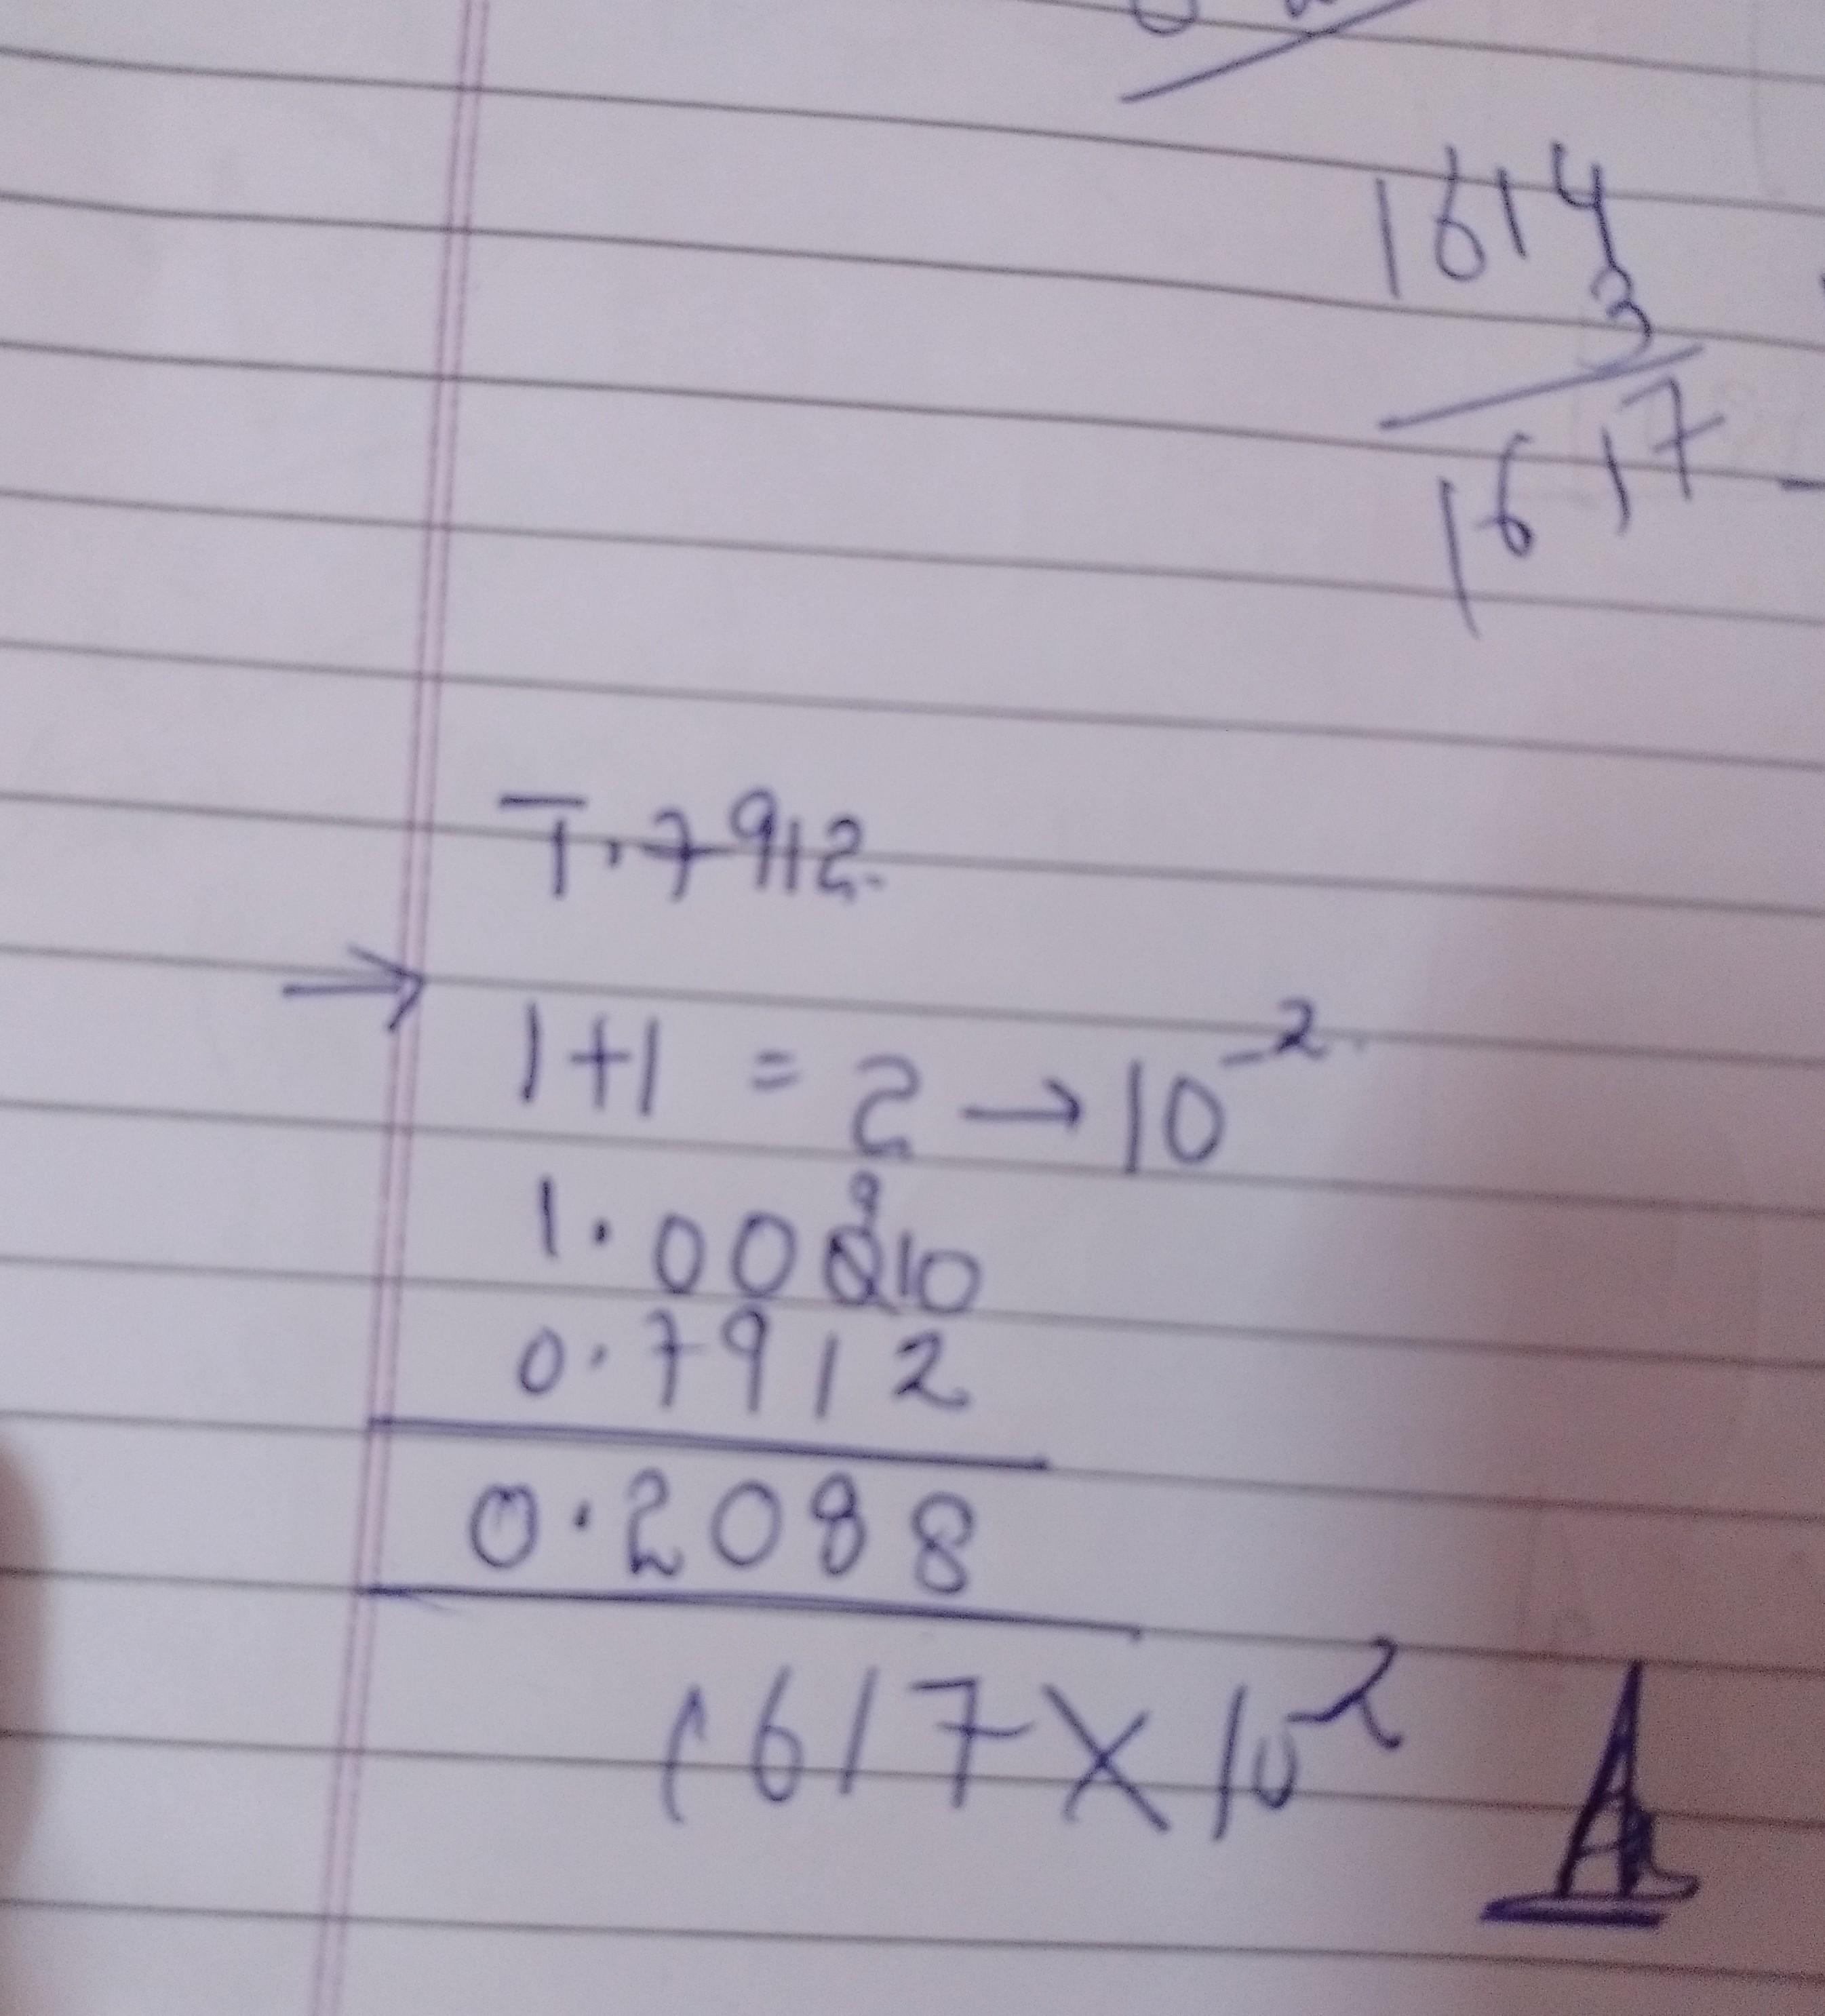 1614
3
1617
1̅.7912.
→
1+1 = 2 → 10⁻²
1.00010
9
0.7912
0.2088
1617 × 10⁻²
A